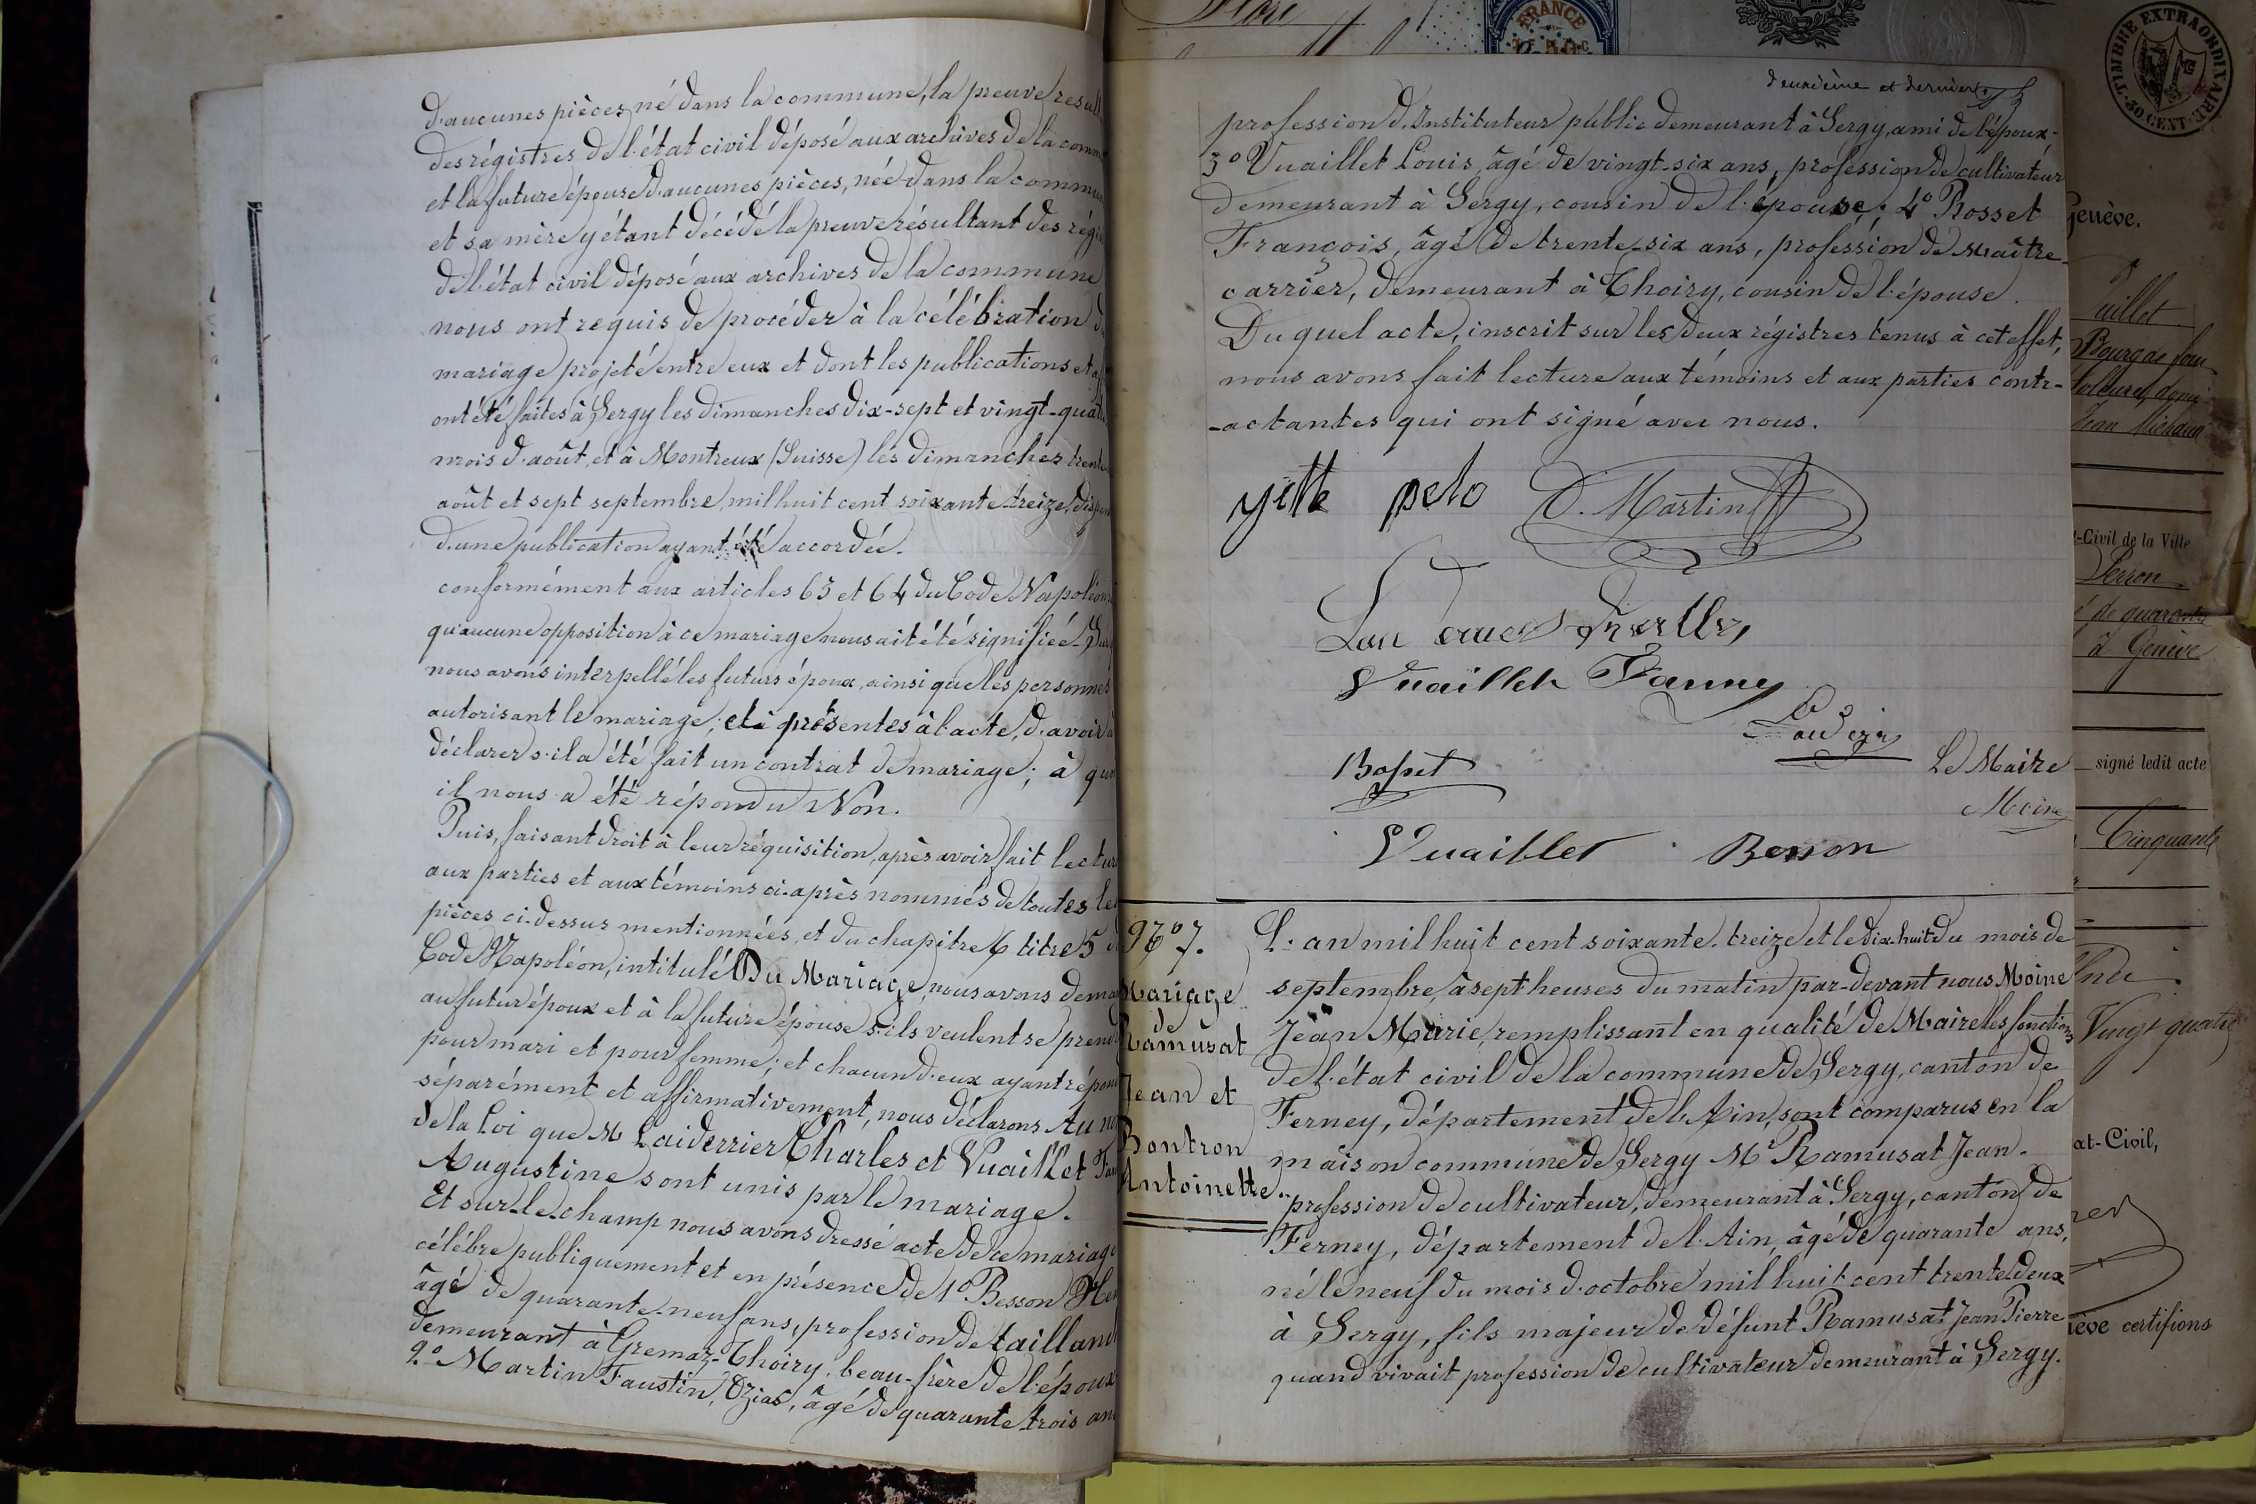 d'aucunes pièces, né dans la commune, la preuve résult
des régistres de l'état civil déposé aux archives de la comm
et la future épouse d'aucunes pièces, née dans la commun
et sa mère y étant décédé la preuve résultant des régis
de l'état civil déposé aux archives de la commune
nous ont requis de procéder à la célébration d
mariage projeté entre eux et dont les publications et aff
ont été faites à Sergy les dimanches dix-sept et vingt-quat
mois d'août, et à Montreux (Suisse) les dimanches trent
août et sept septembre, mil huit cent soixante-treize, disp
d'une publication ayant été accordée.
conformément aux articles 63 et 64 du Code Napoléon
qu'aucune opposition à ce mariage nous ait été signifiée.
nous avons interpellé les futurs époux, ainsi que les personnes
autorisant le mariage, et présentes à l'acte, d'avoir à
déclarer s'il a été fait un contrat de mariage; à quoi
il nous a été répondu Non.
Puis, faisant droit à leur réquisition, après avoir fait lectur
aux parties et aux témoins ci-après nommés de toutes les
pièces ci-dessus mentionnées, et du chapitre 6 titre 5 d
Code Napoléon, intitulé Du Mariage, nous avons dema
au futur époux et à la future épouse s'ils veulent se prend
pour mari et pour femme; et chacun d'eux ayant répon
séparément et affirmativement, nous déclarons Au no
de la Loi que M Laiderrier Charles et Vuaillet Fan
Augustine sont unis par le mariage.
Et sur-le-champ nous avons dressé acte de ce mariage
célébré publiquement et en présence de 1º Besson
âgé de quarante-neuf ans, profession de tailland
demeurant à Gremaz-Thoiry, beau-frère de l'époux
2.º Martin Faustin, Ozias, âgé de quarante trois an
deuxième et dernier
profession d'Instituteur public demeurant à Sergy, ami de l'époux-
3º Vuaillet Louis, âgé de vingt-six ans, profession de cultivateur
demeurant à Sergy, cousin de l'épouse; 4º Rosset
François, âgé de trente-six ans, profession de Maître-
carrier, demeurant à Thoiry, cousin de l'épouse.
Du quel acte, inscrit sur les deux régistres tenus à cet effet,
nous avons fait lecture aux témoins et aux parties contr-
-actantes qui ont signé avec nous.
O. Martin
Vuaillet Fanny
Rosset
Le Maire
Moine
Vuaillet Besson
Nº 7.
Mariage
de
Ramusat
Jean et
Bontron
Antoinette.
L'an mil huit cent soixante-treize et le dix-huit du mois de
septembre, à sept heures du matin par-devant nous Moine
Jean Marie, remplissant en qualité de Maire les fonctions
de l'état civil de la commune de Sergy, canton de
Ferney, département de l'Ain, sont comparus en la
maison commune de Sergy Mr Ramusat Jean.
profession de cultivateur, demeurant à Sergy, canton de
Ferney, département de l'Ain, âgé de quarante ans,
né le neuf du mois d'octobre mil huit cent trente deux
à Sergy, fils majeur de défunt Ramusat Jean Pierre
quand vivait profession de cultivateur demeurant à Sergy.
FRANCE
TIMBRE EXTRAORDINAIRE
50 CENT.
Genève.
uillet
Bourg de four
Jean Michaud
-Civil de la Ville
Perron
é de quarante
à Genève
signé ledit acte
Cinquante
Vingt quatre
at-Civil,
nève certifions